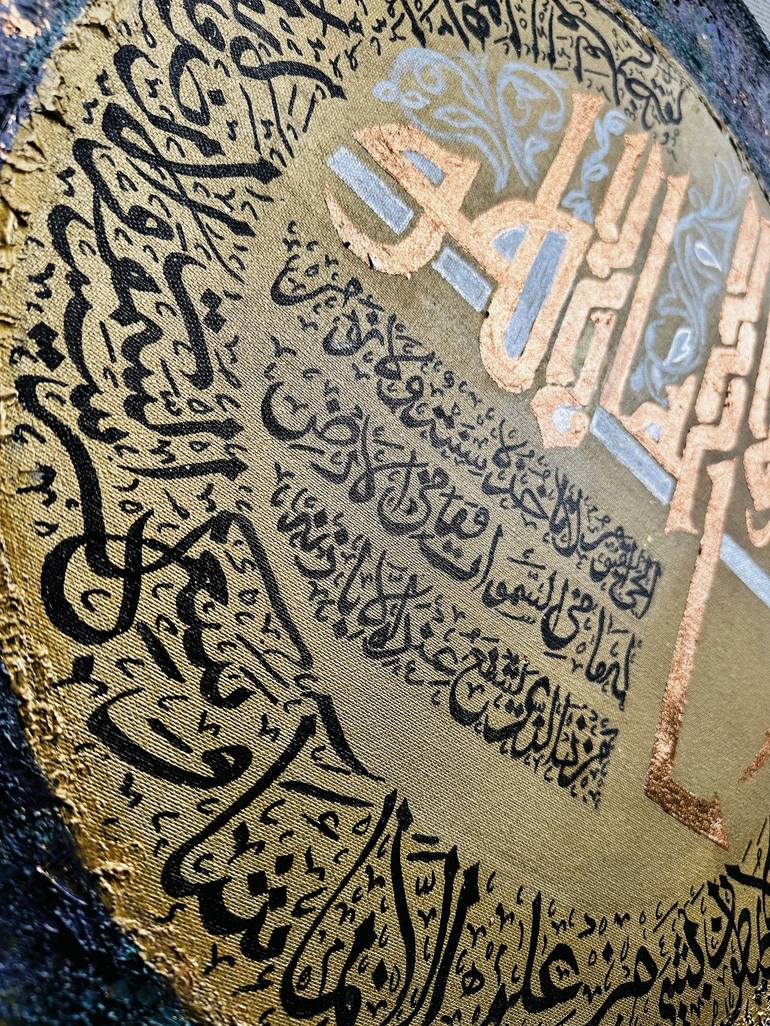 الله لا إله إلا هو
الحي القيوم لا تأخذه سنة ولا نوم
له ما في السموات وما في الأرض
من ذا الذي يشفع عنده إلا بإذنه
بشيء من علمه إلا بما شاء وسع كرسيه السموت والأرض